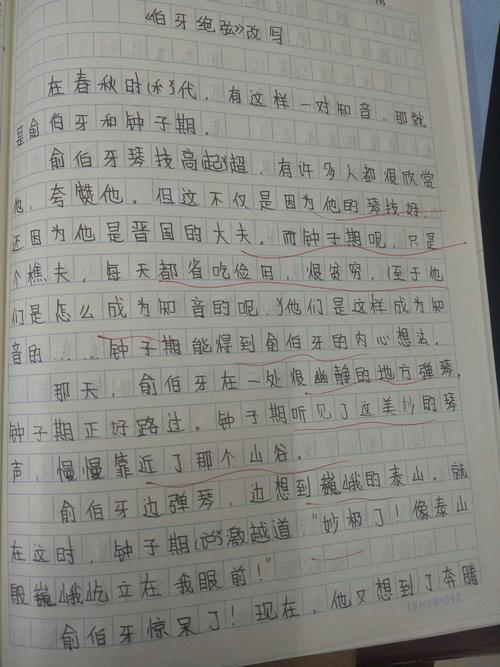 《伯牙绝弦》改写
在春秋时代，有这样一对知音，那就
是俞伯牙和钟子期．
俞伯牙琴技高超，有许多人都很欣赏
他，夸赞他。但这不仅是因为他的琴技好，
还因为他是晋国的大夫。而钟子期呢，只是
个樵夫，每天都省吃俭用，很贫穷，(至于他
们是怎么成为知音的呢，)他们是这样成为知
音的……钟子期能得到俞伯牙的内心想法．
那天，俞伯牙在一处很幽静的地方弹琴，
钟子期正好路过。钟子期听见了这美妙的琴
声，慢慢靠近了那个山谷。
俞伯牙边弹琴，边想到巍峨的泰山。就
在这时，钟子期激越道："妙极了！像泰山
般巍峨屹立在我眼前！"
俞伯牙惊呆了！现在，他又想到了奔腾
19×18=342